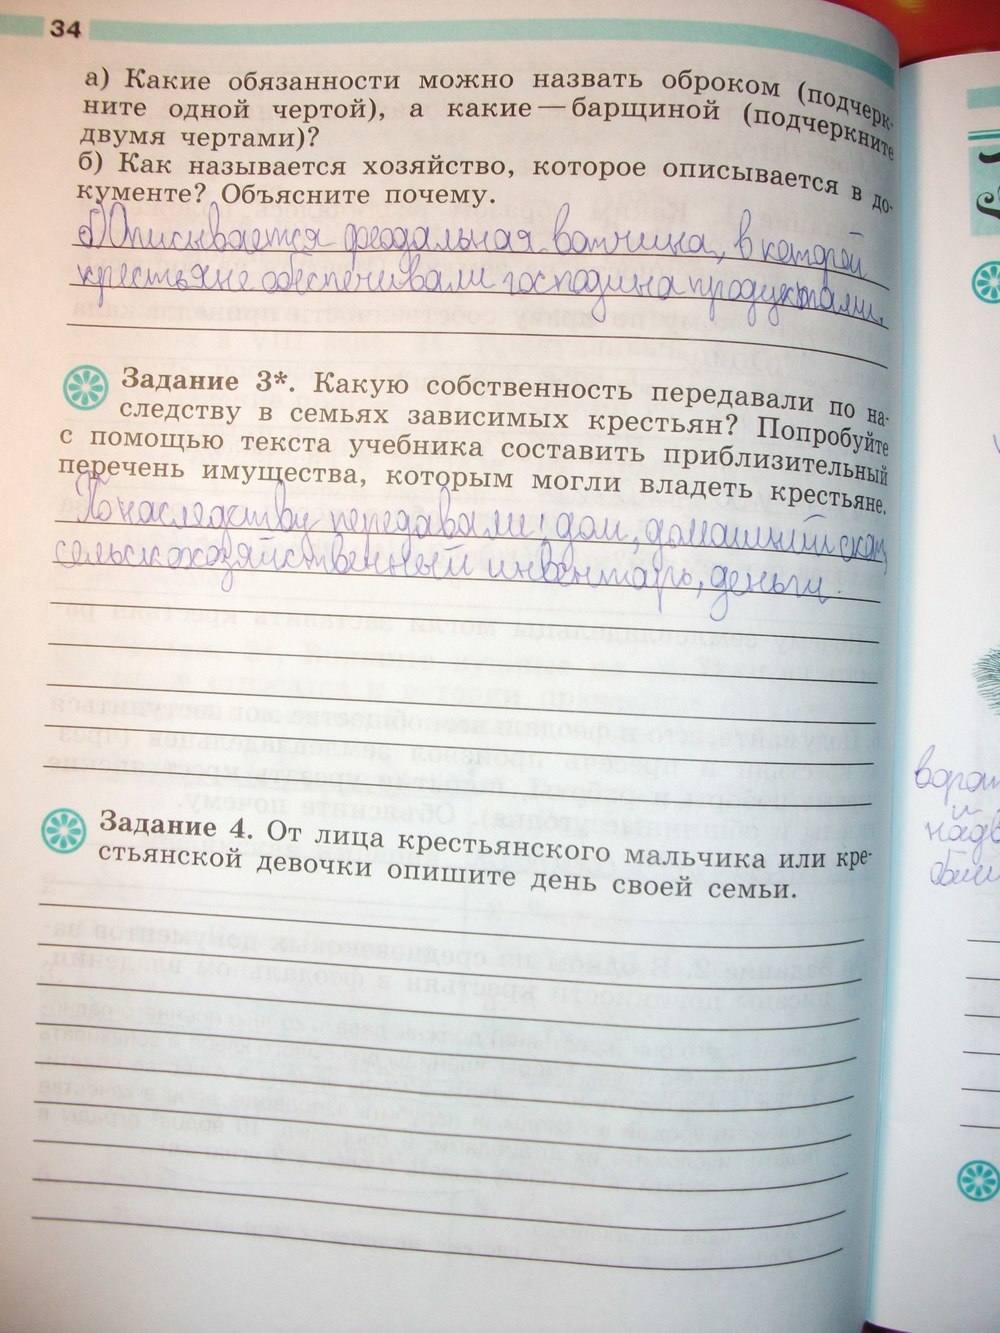 34
а) Какие обязанности можно назвать оброком (подчерк-
ните одной чертой), а какие — барщиной (подчеркните
двумя чертами)?
б) Как называется хозяйство, которое описывается в до-
кументе? Объясните почему.
б) Описывается феодальная вотчина, в которой
крестьяне обеспечивали господина продуктами.
Задание 3*. Какую собственность передавали по на-
следству в семьях зависимых крестьян? Попробуйте
с помощью текста учебника составить приблизительный
перечень имущества, которым могли владеть крестьяне.
По наследству передавали: дом, домашний скот,
сельскохозяйственный инвентарь, деньги.
Задание 4. От лица крестьянского мальчика или кре-
стьянской девочки опишите день своей семьи.
и